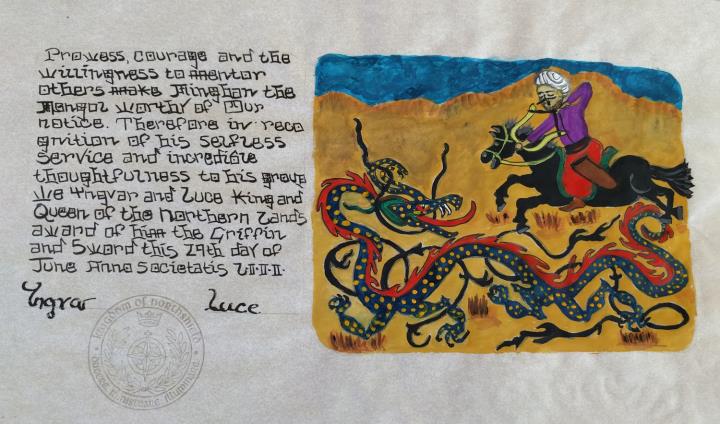 Prowess, courage and the
willingness to mentor
others make Minghan the
Mongol worthy of Our
notice. Therefore in reco
gnition of his selfless
Service and incredible
thoughtfulness to his group
We Yngvar and Luce King and
Queen of the Northern Lands
award of him the Griffin
and Sword this 29th day of
June Anno Societatis L·I·I·I·I·
Yngvar Luce
Kingdom of Northshield